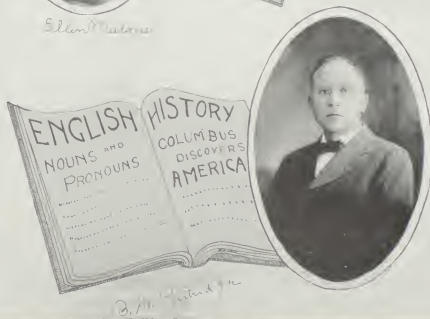 Ellen
ENGLISH
NOUNS AND
PRONOUNS
HISTORY
COLUMBUS
DISCOVERS
AMERICA
B. M.